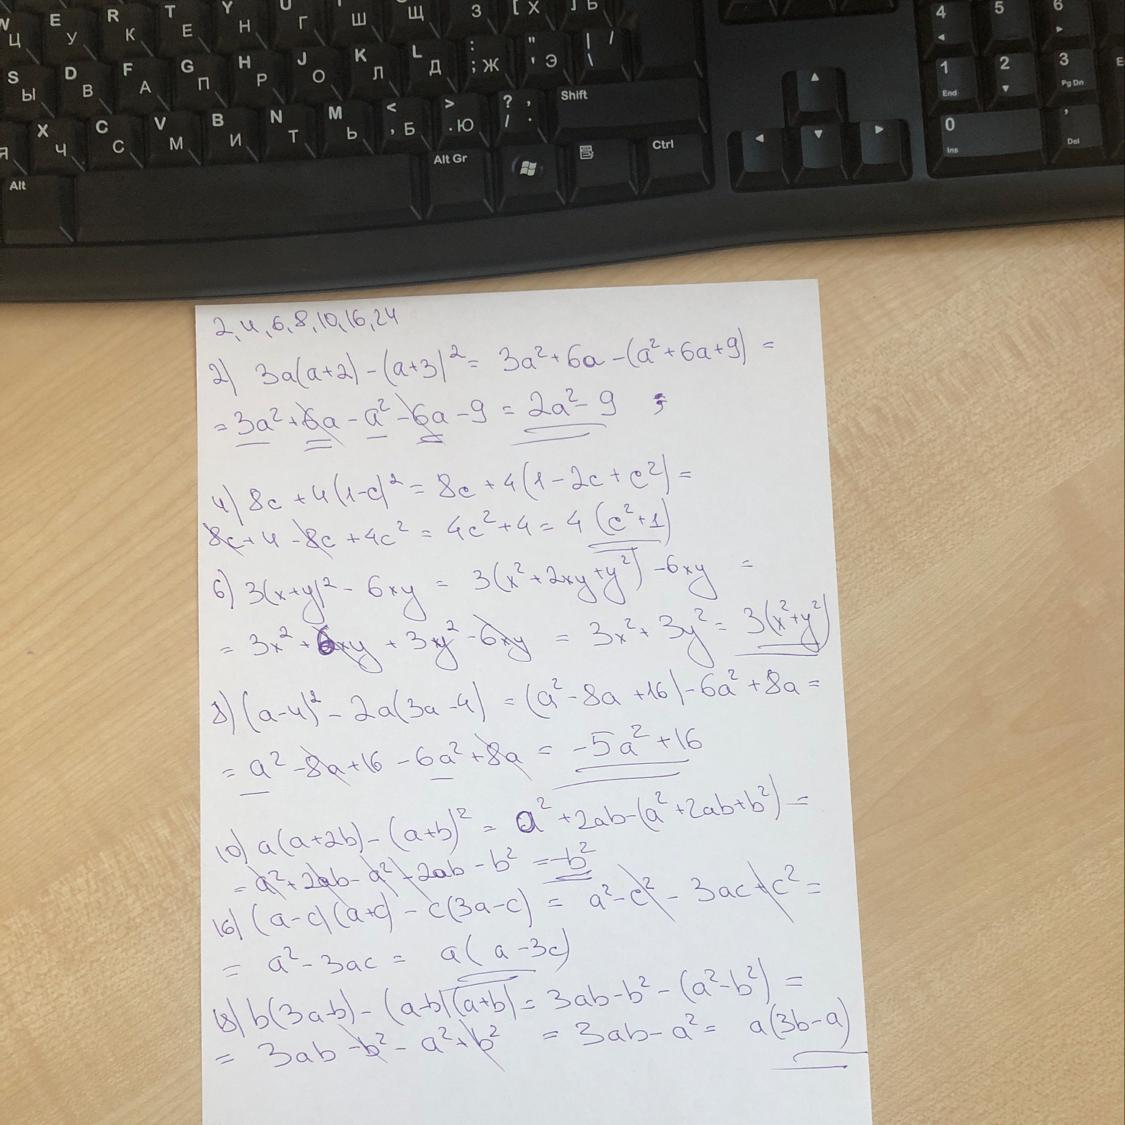 E R T Y U I O [ Х ] Ъ
Ц У К Е Н Г Ш Щ З
S D F G H J K L : ; Ж " ' Э | \ /
Ы В А П Р О Л Д
X C V B N M < , Б > . Ю ? / , . Shift
Я Ч С М И Т Ь
Alt Alt Gr Ctrl
4 5 6
1 End 2 3 Pg Dn
0 Ins , . Del
2, 4, 6, 8, 10, 16, 24
2) 3a(a+2) - (a+3)² = 3a² + 6a - (a² + 6a + 9) =
= 3a² + 6a - a² - 6a - 9 = 2a² - 9 ;
4) 8c + 4(1-c)² = 8c + 4(1 - 2c + c²) =
8c + 4 - 8c + 4c² = 4c² + 4 = 4(c² + 1)
6) 3(x+y)² - 6xy = 3(x² + 2xy + y²) - 6xy =
= 3x² + 6xy + 3y² - 6xy = 3x² + 3y² = 3(x² + y²)
8) (a-4)² - 2a(3a-4) = (a² - 8a + 16) - 6a² + 8a =
= a² - 8a + 16 - 6a² + 8a = -5a² + 16
10) a(a+2b) - (a+b)² = a² + 2ab - (a² + 2ab + b²) =
= a² + 2ab - a² - 2ab - b² = -b²
16) (a-c)(a+c) - c(3a-c) = a² - c² - 3ac + c² =
= a² - 3ac = a(a - 3c)
18) b(3a-b) - (a-b)(a+b) = 3ab - b² - (a² - b²) =
= 3ab - b² - a² + b² = 3ab - a² = a(3b - a)